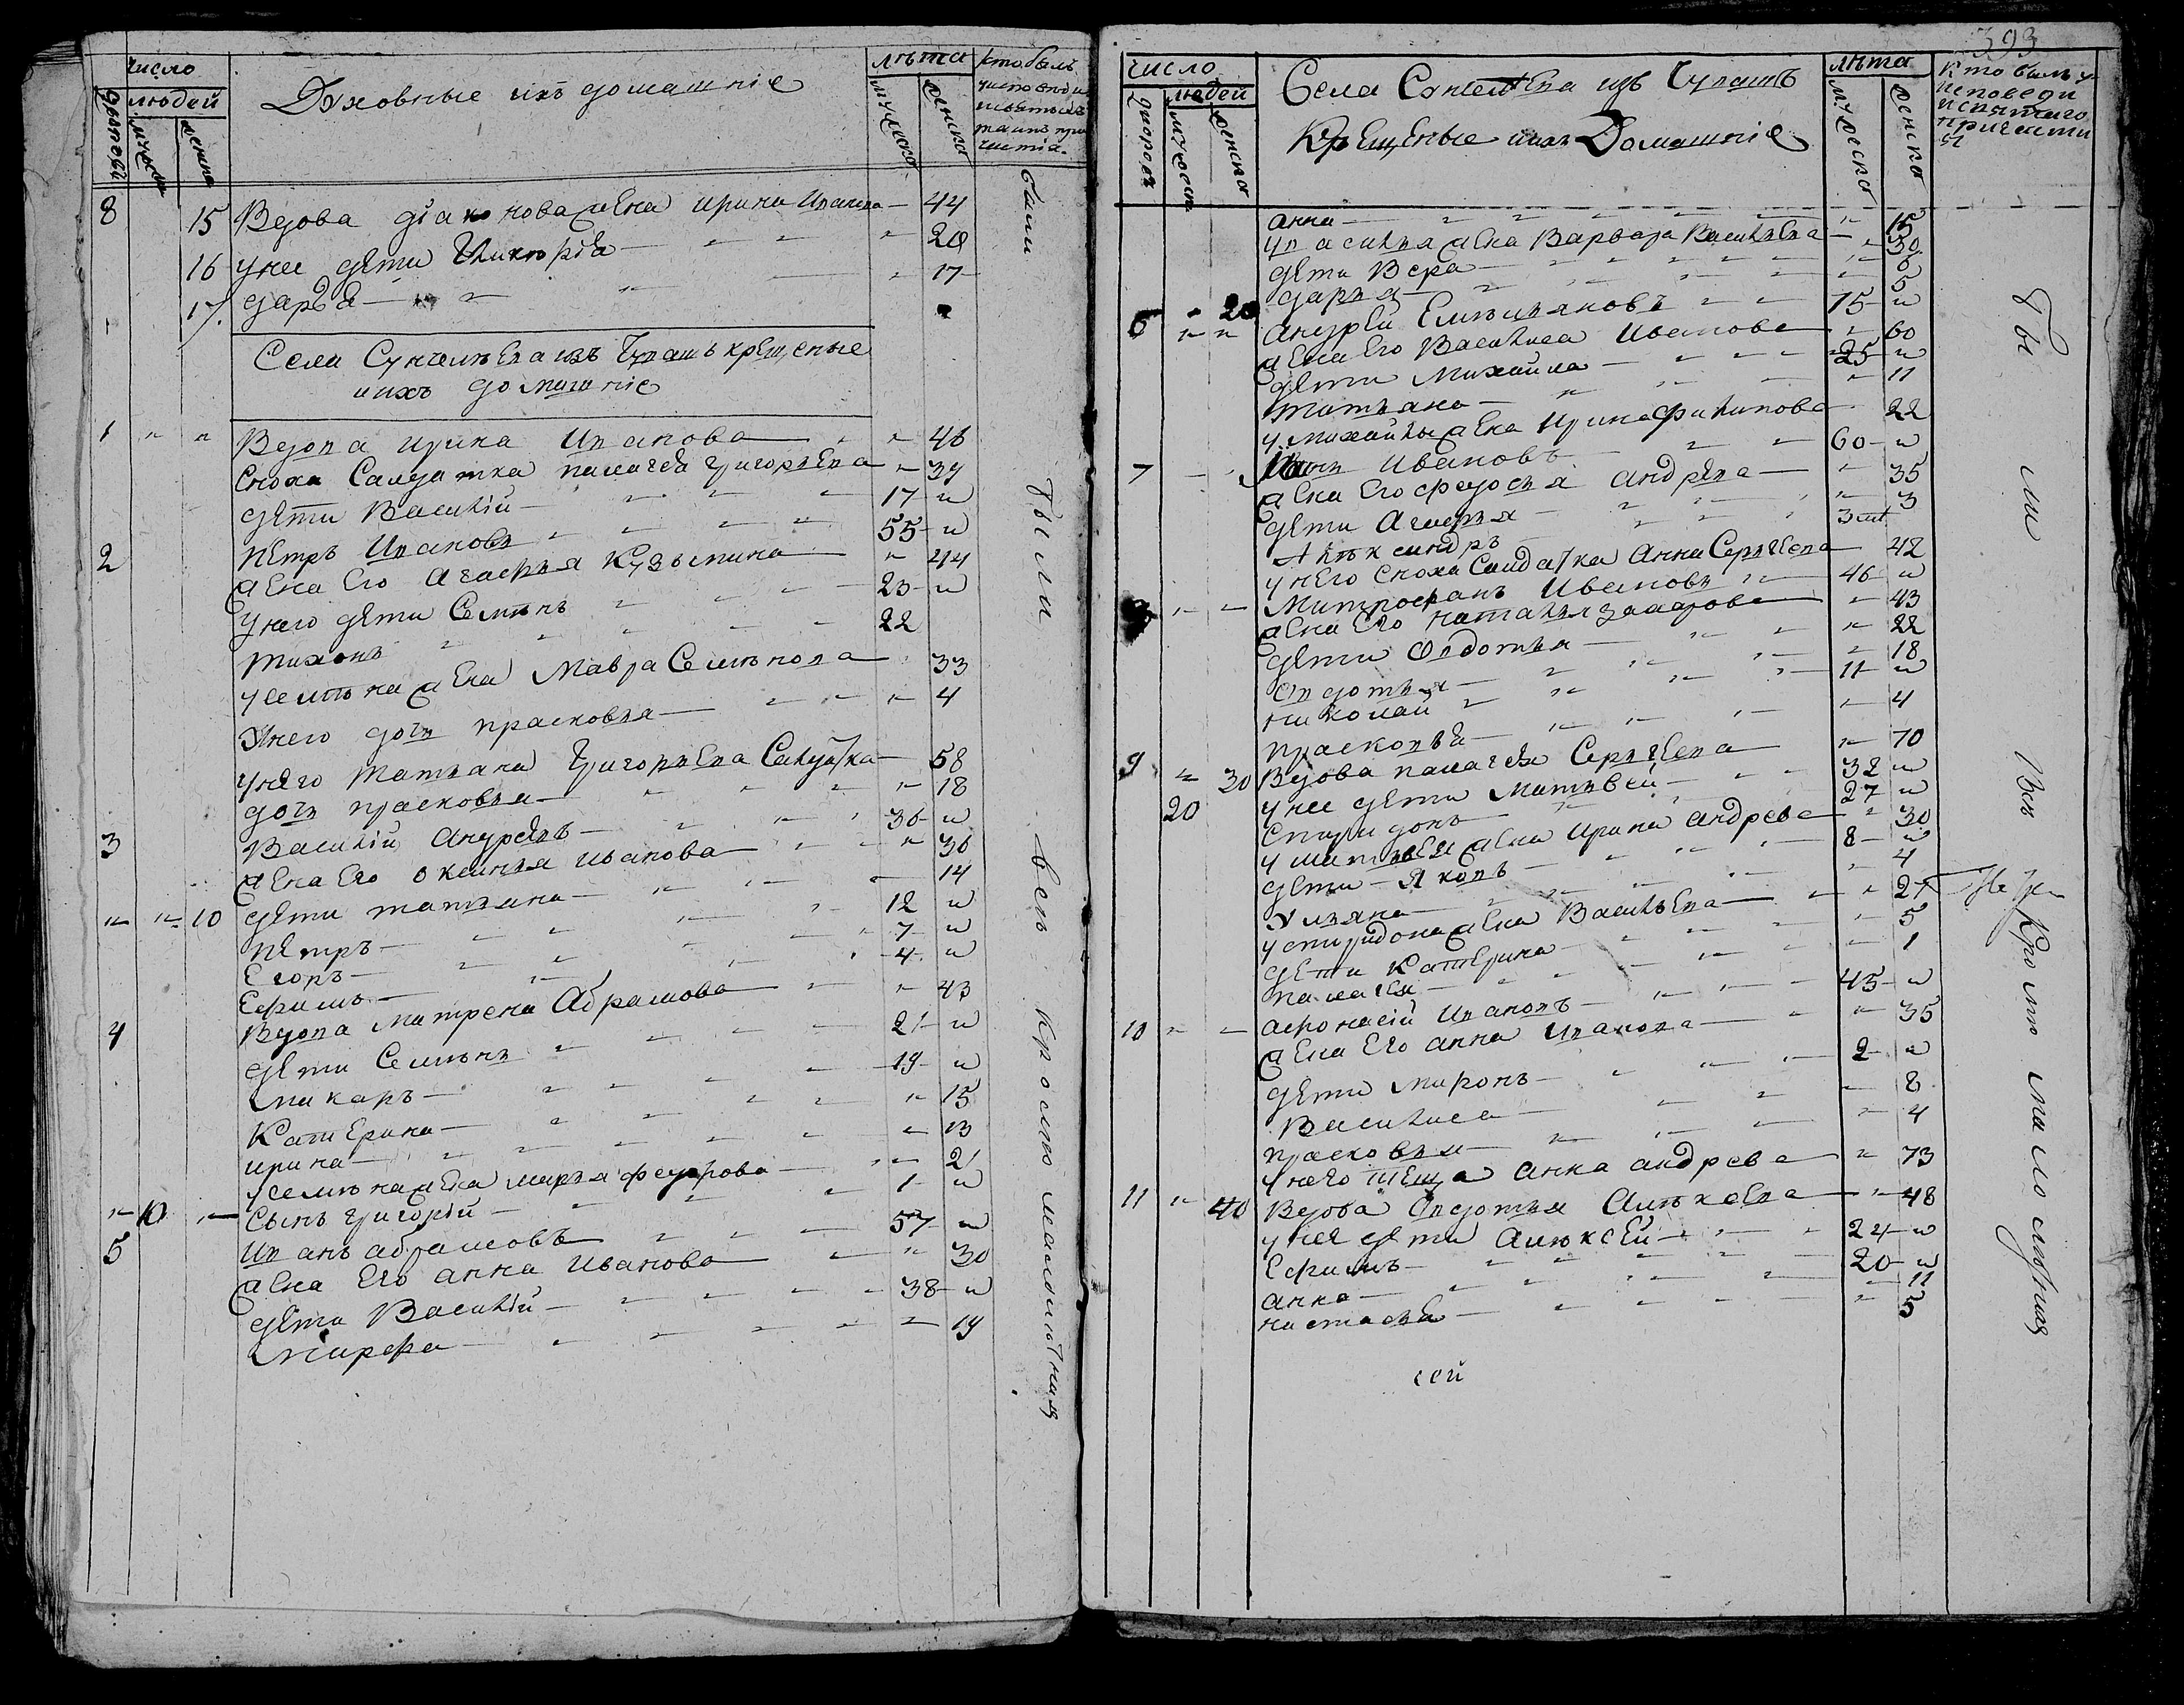 число
людей
дворовъ
мужеска
женска
Духовные ихъ домашніе
лѣта
мужеска
женска
кто былъ
у исповѣди
и святыхъ
таинъ при
частія.
8 15 Вдова діаконова жена ирина Иванова 44
16 унее дети Гликѣрія 20
17 дарья 17
были
Села Сунчелѣева изъ Чувашъ крещеные
иихъ домашніе
1 Вдова ирина Иванова 46
Сноха Салдатка палагея григорьева 39
дети Василій 17
2 Петръ Ивановъ 55
жена Его Агафья Кузьмина 44
унего дети Семѣнъ 23
тихонъ 22
уСемѣна жена Мавра Семѣнова 33
Унего дочь прасковья 4
унего татьяна Григорьева Салдатка 58
дочь прасковья 18
3 Василій Андреевъ 36
жена Его оксинья иванова 36
10 дети татьяна 14
Петръ 12
Егоръ 7
Ефимъ 4
4 Вдова Матрена Абрамова 43
дети Семѣнъ 21
Макаръ 19
Катерина 15
ирина 13
усемѣна жена марья федорова 21
10 Сынъ григорій 1
5 Иванъ абрамовъ 57
жена Его анна Иванова 30
дети Василій 38
Марфа 19
были всѣ кромѣ малолѣтных
393
число
людей
дворовъ
мужеска
женска
Села Сунчелѣева изъ Чувашъ
Крещеные иихъ Домашніе
лѣта
мужеска
женска
Кто былъ у
исповеди
и святаго
причасти
я
анна 15
уВасилья жена Варвара Васильева 30
дети Вера 6
дарья 5
6 20 андрей Емельяновъ 75
жена Его Василиса Иванова 60
дети Михайла 25
татьяна 11
уМихайлы жена Ирина филипова 22
7 Иванъ Ивановъ 60
жена Его федосья андрева 35
дети Агафья 3
Алѣксандръ
унего сноха Салдатка Анна Сергеева 42
Митрофанъ Ивановъ 46
жена Его наталья захарова 43
дети овдотья 22
овдотья 18
николай 11
прасковья 4
9 30 Вдова палагея Сергеева 70
20 унее дети Матьвей 32
Спиридонъ 27
уматьвея жена ирина андрева 30
дети Яковъ 8
Ульяна 4
успиридона жена Васильева 27
дети Катерина 5
палагея 1
10 афонасій Ивановъ 45
жена Его анна Иванова 35
дети миронъ 2
Василиса 8
прасковья 4
унего теща анна андрева 73
11 40 Вдова Овдотья Алѣксеева 48
унея дети Алѣксей 24
Ефимъ 20
анна 11
настасья 5
сей
были Всѣ Кромѣ малолѣтных